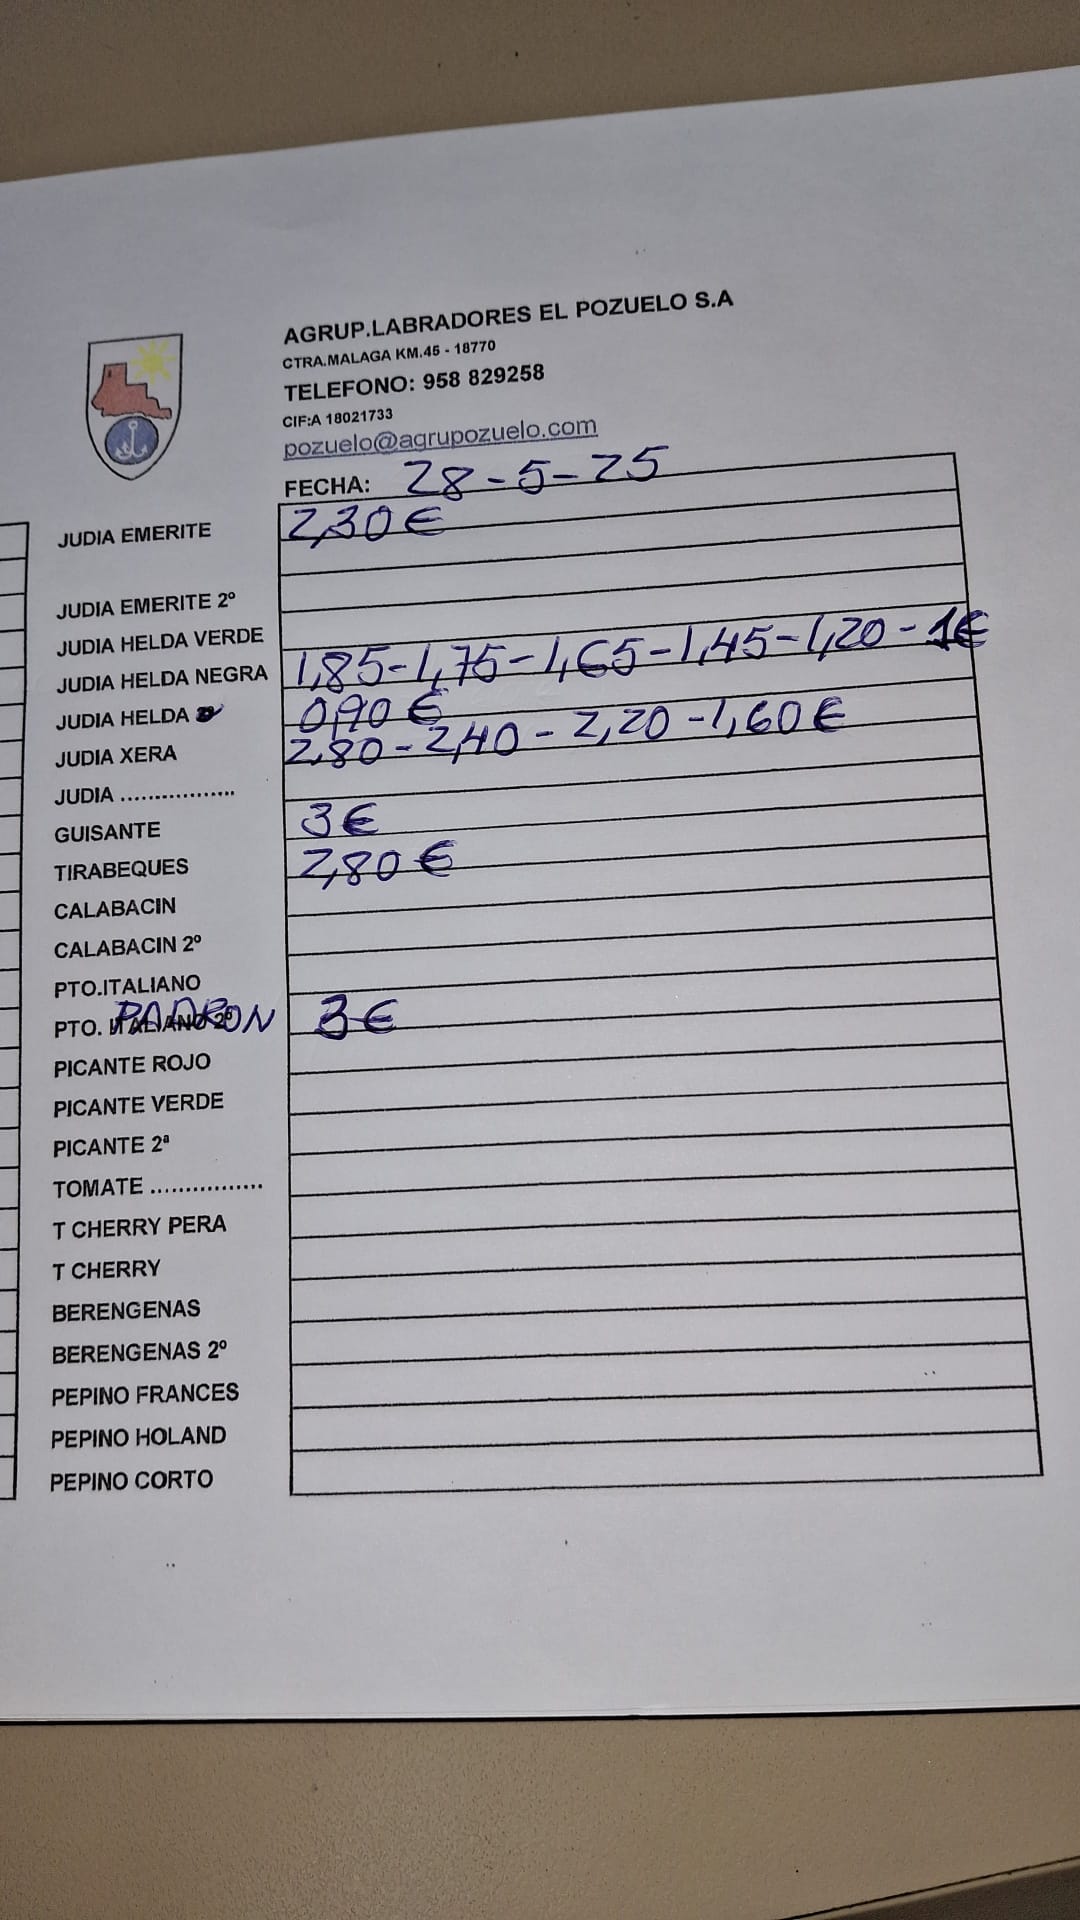 AGRUP.LABRADORES EL POZUELO S.A
CTRA.MALAGA KM.45 - 18770
TELEFONO: 958 829258
CIF:A 18021733
pozuelo@agrupozuelo.com
FECHA: 28-5-25
JUDIA EMERITE 2,30€
JUDIA EMERITE 2º
JUDIA HELDA VERDE
JUDIA HELDA NEGRA 1,85-1,75-1,65-1,45-1,20-1€
JUDIA HELDA 0,90€
JUDIA XERA 2,80-2,40-2,20-1,60€
JUDIA .................
GUISANTE 3€
TIRABEQUES 2,80€
CALABACIN
CALABACIN 2º
PTO.ITALIANO
PTO. ITALIANO 2º PADRON 3€
PICANTE ROJO
PICANTE VERDE
PICANTE 2ª
TOMATE ................
T CHERRY PERA
T CHERRY
BERENGENAS
BERENGENAS 2º
PEPINO FRANCES
PEPINO HOLAND
PEPINO CORTO